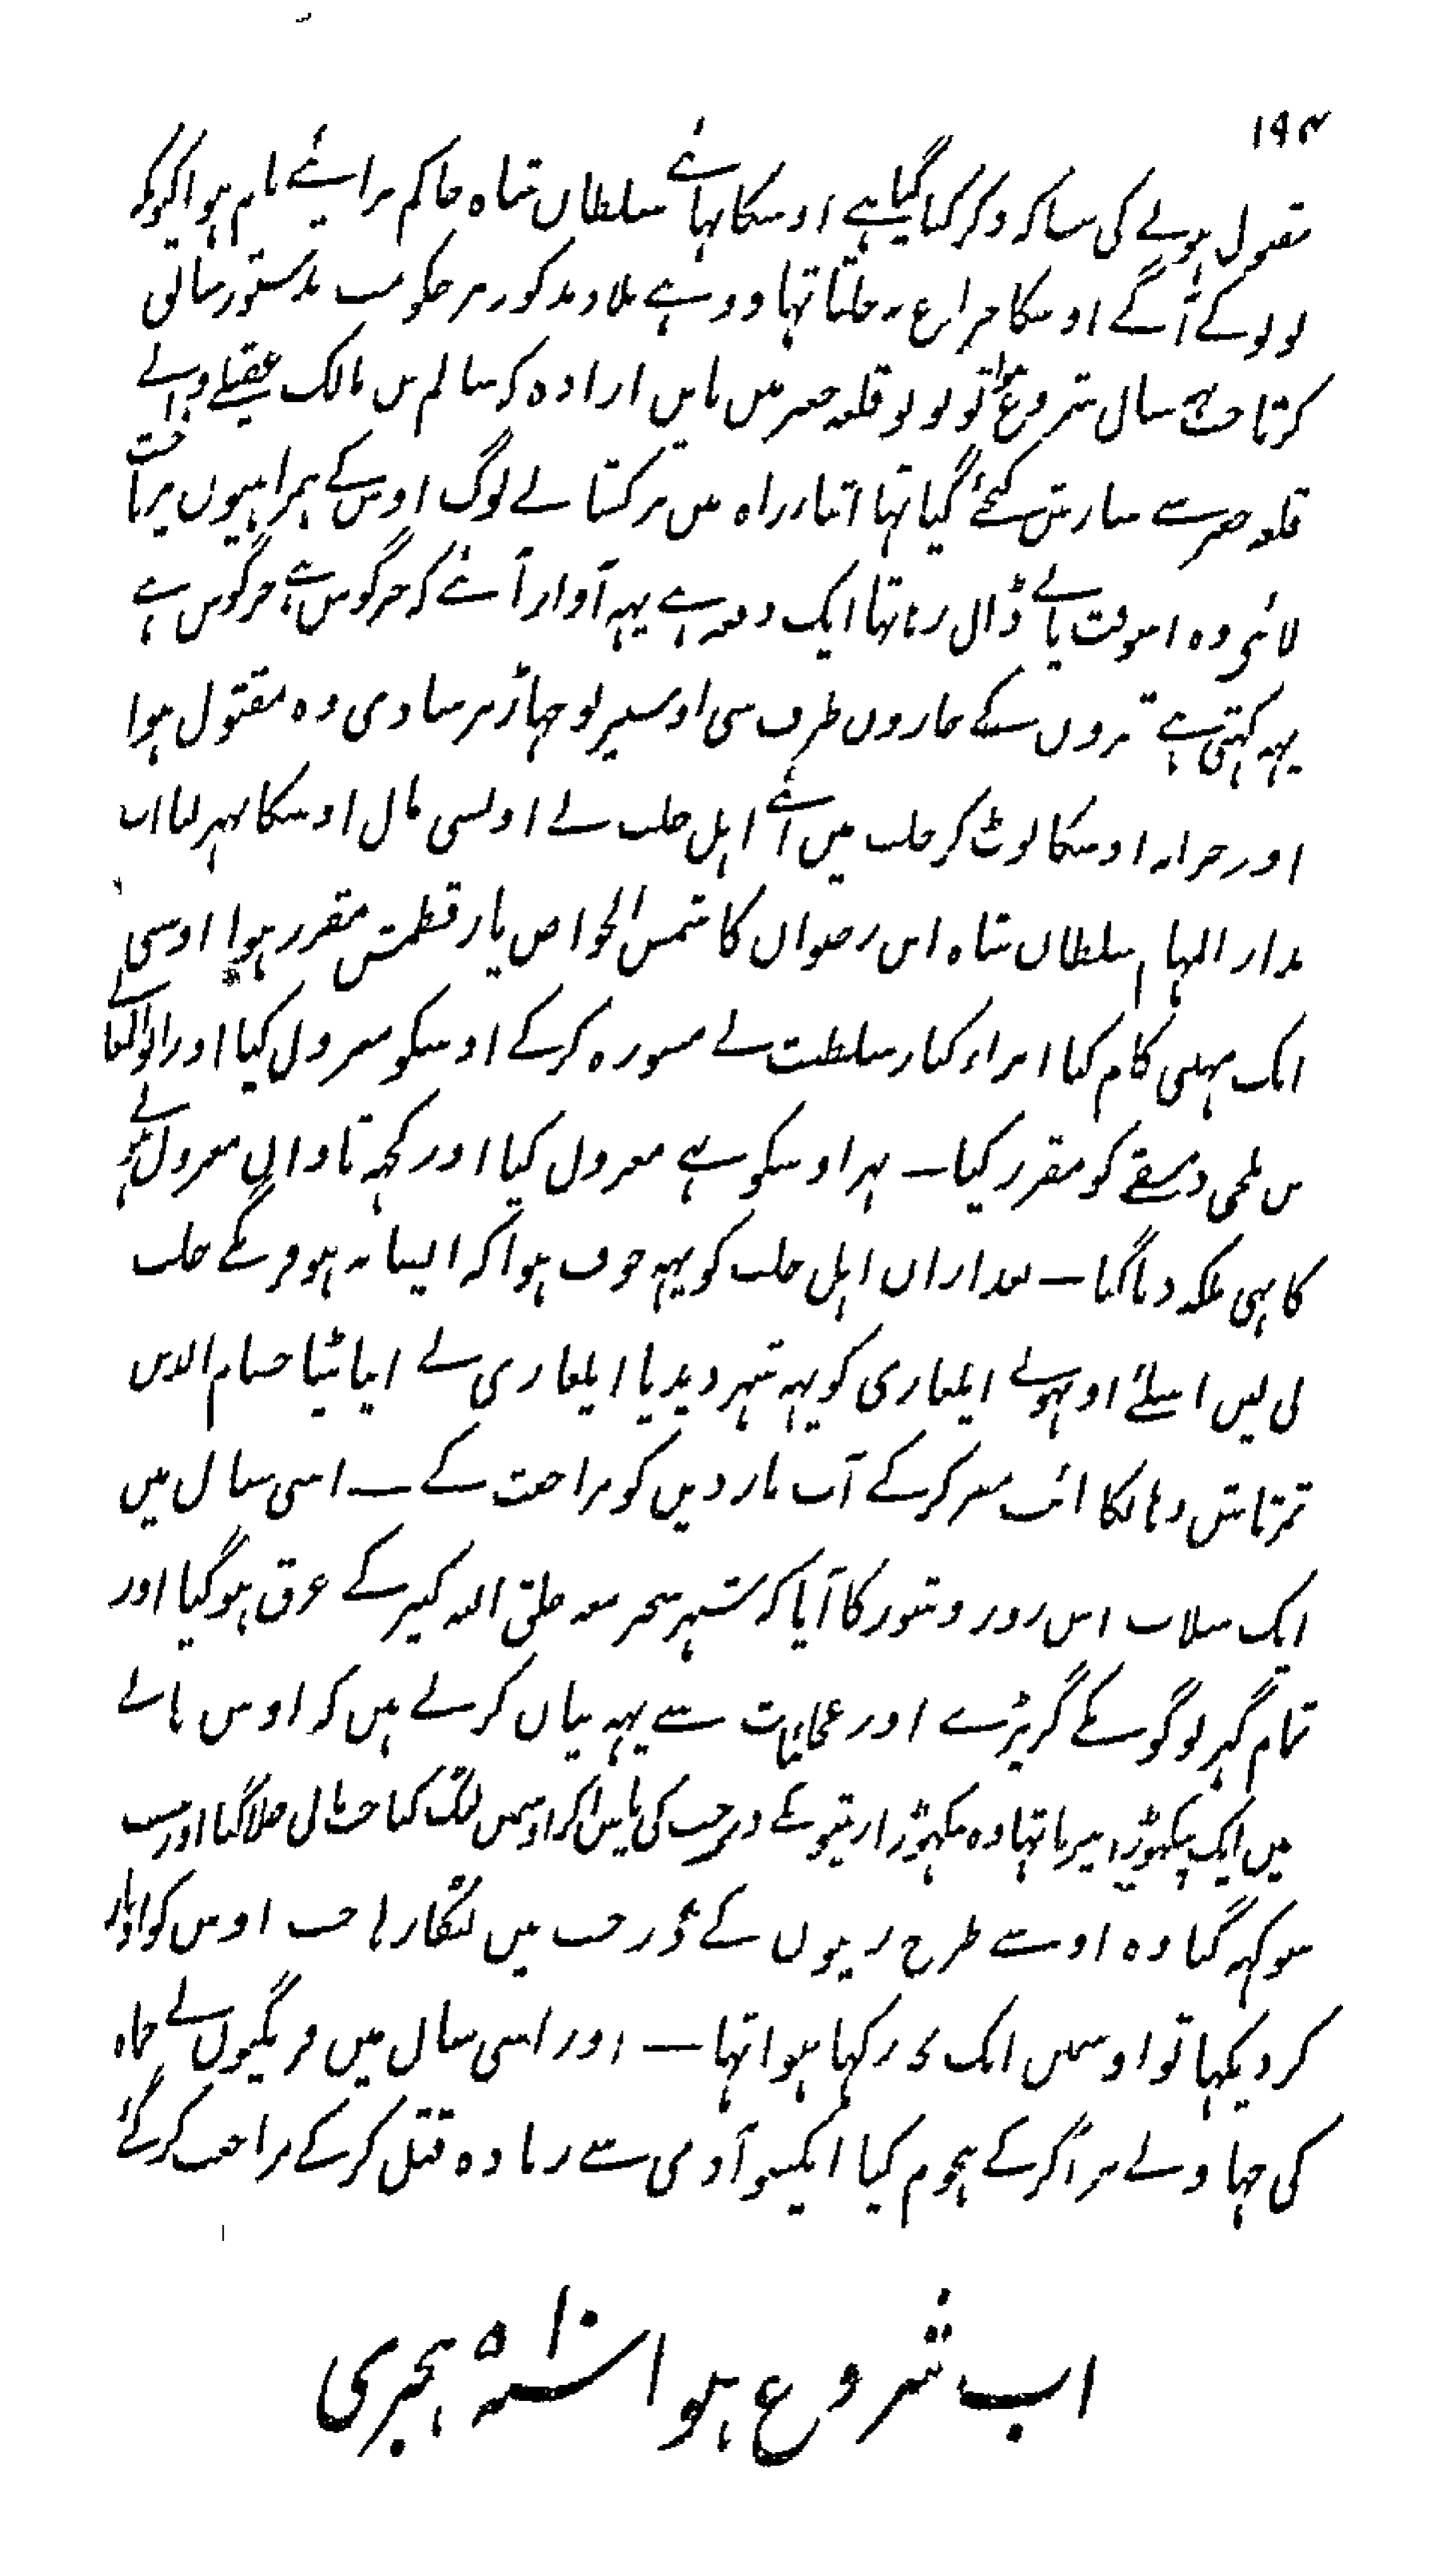 ۱۹۴
مقتول ہونے کی جیسا کہ ذکر کیا گیا ہے اوسکا بہائے سلطان شاہ حاکم برائے نام ہوا کیونکہ
لولو کے آگے اوسکا چراغ نہ جلتا تہا وو ہے بلاد مذکورہ پر حکومت بدستور سابق
کرتا جب یہ سال شروع ہوا تو لولو قلعہ جعبر میں باین ارادہ کہ سالم بن مالک عقیلے والے
قلعہ جعبر سے سازش کیجئے گیا تہا اثنار راہ میں ترکتا نے لوگ اوس کے ہمراہیوں پر تاخت
لائی وہ اسوقت پانے ڈال رہا تہا ایک دفعہ ہے یہہ آواز آئے کہ خرگوش ہے خرگوش ہے
یہہ کہتی ہے تیروں کے چاروں طرف سی اوسپر بوجہاڑ برسا دی وہ مقتول ہوا
اور خزانہ اوسکا لوٹ کر حلب میں آئے اہل حلب نے اونسی مال اوسکا پہر لیا اب
مدار المہام سلطان شاہ ابن رضوان کا شمس الخواص یارقطمش مقرر ہوا اوسی نے
ایک مہینی کام کیا امراء کبار سلطنت نے مشورہ کرکے اوسکو معزول کیا اور ابو المعالے
بن ملحی دمشقے کو مقرر کیا ۔ پہر اوسکو ہے معزول کیا اور کچہہ تاوان معزول ہونے
کا بہی بلکہ دیا گیا ۔ بعد ازان اہل حلب کو یہہ خوف ہوا کہ ایسا نہ ہو فرنگے حلب
لی لیں اسلئے اونہوں نے ایلغازی کو یہہ شہر دیدیا ایلغازی نے اپنا بیٹا حسام الدین
تمرتاش وہانکا نائب مقرر کرکے آپ ماردین کو مراجعت کے ۔ اسی سال میں
ایک سیلاب اس زور و شور کا آیا کہ شہر سنجر معہ خلق اللہ کثیر کے غرق ہوگیا اور
تمام گہر لوگو کے گر پڑے اور عجائبات سے یہہ بیان کرتے ہیں کہ اوس پانے
میں ایک پنگہوڑا تیرتا تہا وہ پنگہوڑا زیتو کے درخت کی پاس آکر اوسمیں لٹک گیا جب پانی چلا گیا اور سب
سوکہہ گیا وہ اوسے طرح زیتوں کے درخت میں لٹکا رہا جب اوس کو اوتار
کر دیکہا تو اوسمیں ایک بچہ رکہا ہوا تہا ۔ اور اسی سال میں فرنگیوں نے حماہ
کی چہاونے پر آکر کے ہجوم کیا ایکسو آدمی سے زیادہ قتل کرکے مراجعت کرگئے
اب شروع ہوا سنہ ہجری